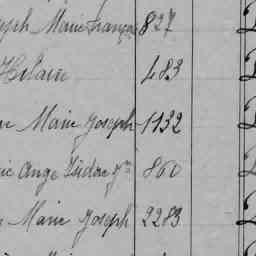 Marie François 827
Hilaire 483
Marie Joseph 1132
Ange Isidore Jn 860
Marie Joseph 2283